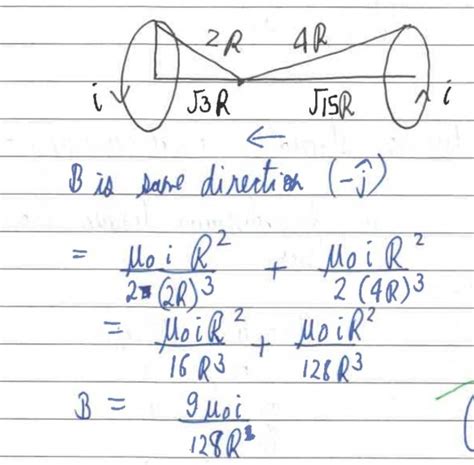 2R 4R
i √3R √15R i
←
B is same direction (-ĵ)
= μ₀ i R² / 2 (2R)³ + μ₀ i R² / 2 (4R)³
= μ₀ i R² / 16 R³ + μ₀ i R² / 128 R³
B = 9 μ₀ i / 128 R